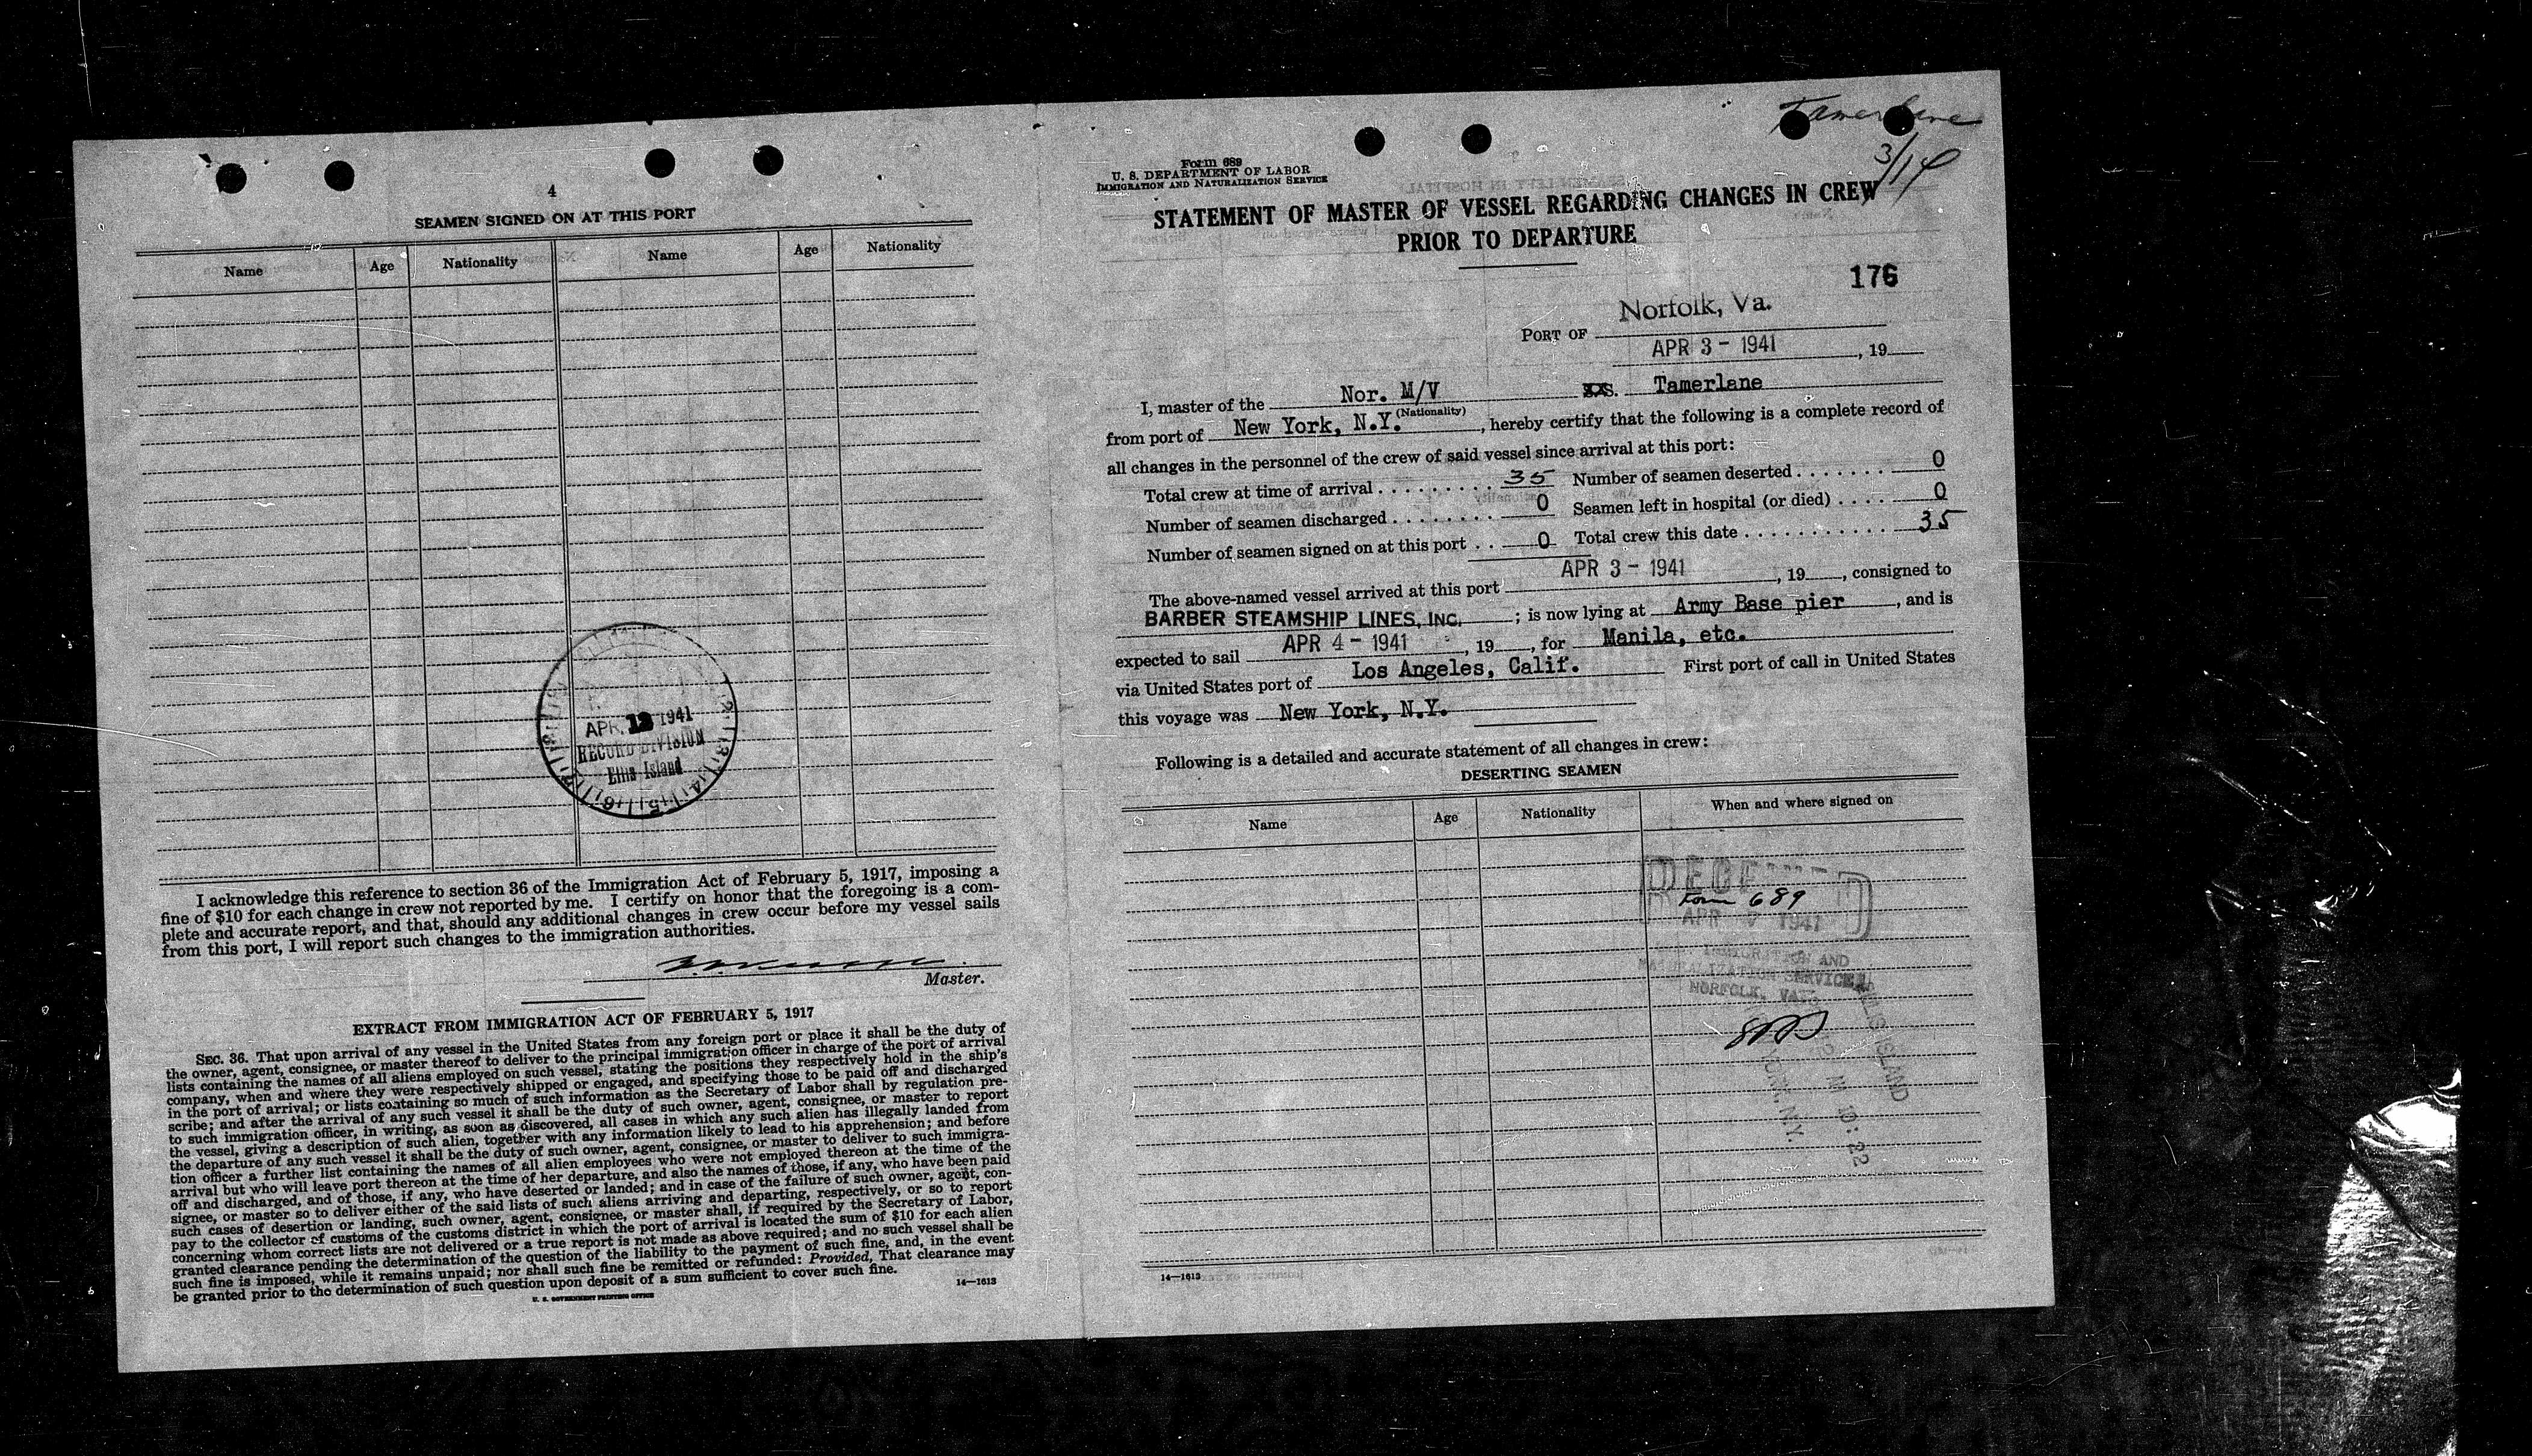 4
SEAMEN SIGNED ON AT THIS PORT
Name Age Nationality Name Age Nationality
APR. 12 1941
RECORD DIVISION
Ellis Island
I acknowledge this reference to section 36 of the Immigration Act of February 5, 1917, imposing a
fine of $10 for each change in crew not reported by me. I certify on honor that the foregoing is a com-
plete and accurate report, and that, should any additional changes in crew occur before my vessel sails
from this port, I will report such changes to the immigration authorities.
Master.
EXTRACT FROM IMMIGRATION ACT OF FEBRUARY 5, 1917
SEC. 36. That upon arrival of any vessel in the United States from any foreign port or place it shall be the duty of
the owner, agent, consignee, or master thereof to deliver to the principal immigration officer in charge of the port of arrival
lists containing the names of all aliens employed on such vessel, stating the positions they respectively hold in the ship's
company, when and where they were respectively shipped or engaged, and specifying those to be paid off and discharged
in the port of arrival; or lists containing so much of such information as the Secretary of Labor shall by regulation pre-
scribe; and after the arrival of any such vessel it shall be the duty of such owner, agent, consignee, or master to report
to such immigration officer, in writing, as soon as discovered, all cases in which any such alien has illegally landed from
the vessel, giving a description of such alien, together with any information likely to lead to his apprehension; and before
the departure of any such vessel it shall be the duty of such owner, agent, consignee, or master to deliver to such immigra-
tion officer a further list containing the names of all alien employees who were not employed thereon at the time of the
arrival but who will leave port thereon at the time of her departure, and also the names of those, if any, who have been paid
off and discharged, and of those, if any, who have deserted or landed; and in case of the failure of such owner, agent, con-
signee, or master so to deliver either of the said lists of such aliens arriving and departing, respectively, or so to report
such cases of desertion or landing, such owner, agent, consignee, or master shall, if required by the Secretary of Labor,
pay to the collector of customs of the customs district in which the port of arrival is located the sum of $10 for each alien
concerning whom correct lists are not delivered or a true report is not made as above required; and no such vessel shall be
granted clearance pending the determination of the question of the liability to the payment of such fine, and, in the event
such fine is imposed, while it remains unpaid; nor shall such fine be remitted or refunded: Provided, That clearance may
be granted prior to the determination of such question upon deposit of a sum sufficient to cover such fine.
14—1613
U. S. GOVERNMENT PRINTING OFFICE
Tamerlane
3/14
Form 689
U. S. DEPARTMENT OF LABOR
IMMIGRATION AND NATURALIZATION SERVICE
STATEMENT OF MASTER OF VESSEL REGARDING CHANGES IN CREW
PRIOR TO DEPARTURE
176
PORT OF Norfolk, Va.
APR 3 - 1941 , 19
I, master of the Nor. M/V S. Tamerlane
(Nationality)
from port of New York, N.Y. , hereby certify that the following is a complete record of
all changes in the personnel of the crew of said vessel since arrival at this port:
Total crew at time of arrival . . . . . . . . . 35 Number of seamen deserted . . . . . . . 0
Number of seamen discharged . . . . . . . . 0 Seamen left in hospital (or died) . . . . 0
Number of seamen signed on at this port . . 0 Total crew this date . . . . . . . . . . . 35
The above-named vessel arrived at this port APR 3 - 1941 , 19 , consigned to
BARBER STEAMSHIP LINES, INC. ; is now lying at Army Base pier , and is
expected to sail APR 4 - 1941 , 19 , for Manila, etc.
via United States port of Los Angeles, Calif. First port of call in United States
this voyage was New York, N.Y.
Following is a detailed and accurate statement of all changes in crew:
DESERTING SEAMEN
Name Age Nationality When and where signed on
Form 689
APR 1941
IMMIGRATION AND
NATURALIZATION SERVICE
NORFOLK, VA.
ELLIS ISLAND
10:22
N.Y.
14—1613